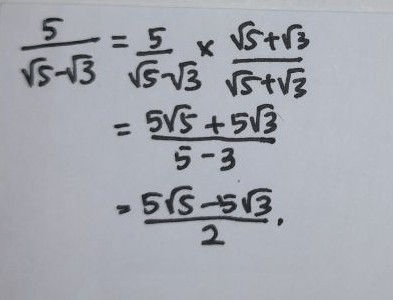 5/(√5-√3) = 5/(√5-√3) × (√5+√3)/(√5+√3)
= (5√5+5√3)/(5-3)
= (5√5-5√3)/2.